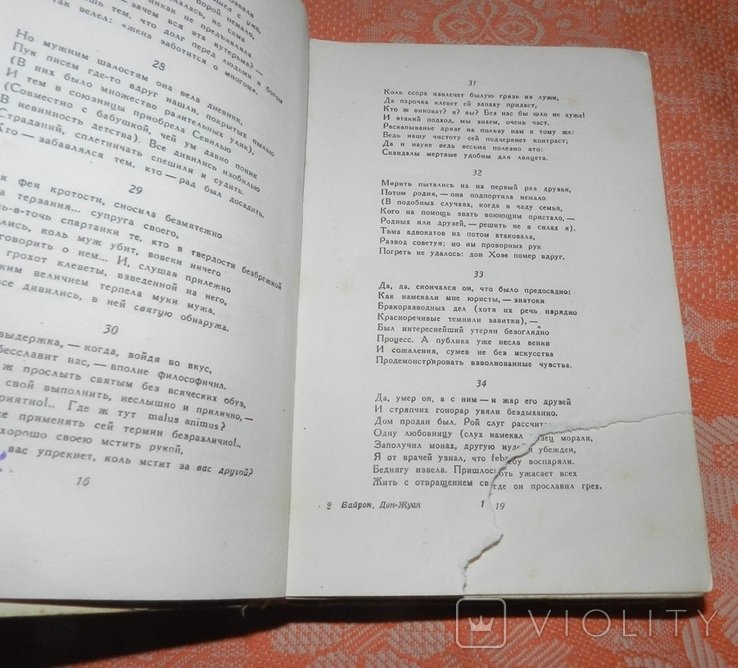 звала
шел с ума,
порой немало,
никак не предъявляла
лалась, но сама
зачем вся эта кутерьма? —
лишь тем, что долг перед людьми и богом
так велел: «жена заботится о многом».
28
Но мужним шалостям она вела дневник,
Пук писем где-то вдруг нашли, покрытых пылью
(В них было множество разительных улик)
И тем в союзницы приобрела Севилью
(Совместно с бабушкой, чей ум давно поник
В невинность детства). Все дивились изобилью
Страданий, сплетничать спешили и судить.
Кто — забавлялся тем, кто — рад был досадить.
29
к фея кротости, сносила безмятежно
терзания... супруга своего,
ь-в-точь спартанки те, кто в твердости безбрежной
лись, коль муж убит, вовеки ничего
говорить о нем... И, слушая прилежно
грохот клеветы, взведенной на него,
ким величием терпела муки мужа,
се дивились, в ней святую обнаружа.
30
выдержка, — когда, войдя во вкус,
бесславит нас, — вполне философична.
ж прослыть святым без всяческих обуз,
свой выполнить, неслышно и прилично, —
приятно!.. Где ж тут malus animus?
же применять сей термин безразлично!..
хорошо своею мстить рукой,
вас упрекнет, коль мстит за вас другой?
16
31
Коль ссора извлечет былую грязь из лужи,
Да парочка клевет ей запаху придаст,
Кто ж виноват? я? вы? Без нас бы шло не хуже!
И этакий подход, мы знаем, очень част.
Раскапыванье дрязг на пользу нам к тому же:
Ведь нашу чистоту сей подчеркнет контраст;
Да и науке ведь весьма полезно это:
Скандалы мертвые удобны для ланцета.
32
Мирить пытались их на первый раз друзья,
Потом родня, — она подпортила немало
(В подобных случаях, когда в чаду семьи,
Кого на помощь звать воюющим пристало, —
Родных или друзей, — решить не в силах я).
Тьма адвокатов их потом атаковала,
Развод советуя; но им проворных рук
Погреть не удалось: дон Хозе помер вдруг.
33
Да, да, скончался он, что было предосадно:
Как намекали мне юристы, — знатоки
Бракоразводных дел (хотя их речь нарядно
Красноречивые темнили завитки), —
Был интереснейший утерян безоглядно
Процесс. А публика уже несла венки
И сожаления, сумев не без искусства
Продемонстрировать взволнованные чувства.
34
Да, умер он, а с ним — и жар его друзей
И стряпчих гонорар увяли бездыханно.
Дом продан был. Рой слуг рассчит
Одну любовницу (слух намекал зец морали,
Заполучил монах, другую иудей убежден,
Я от врачей узнал, что feb ебу воспаряли.
Беднягу извела. Пришлос ужасает всех
Жить с отвращением св где он прославил грех.
2 Байрон, Дон-Жуан
1 19
VIOLITY